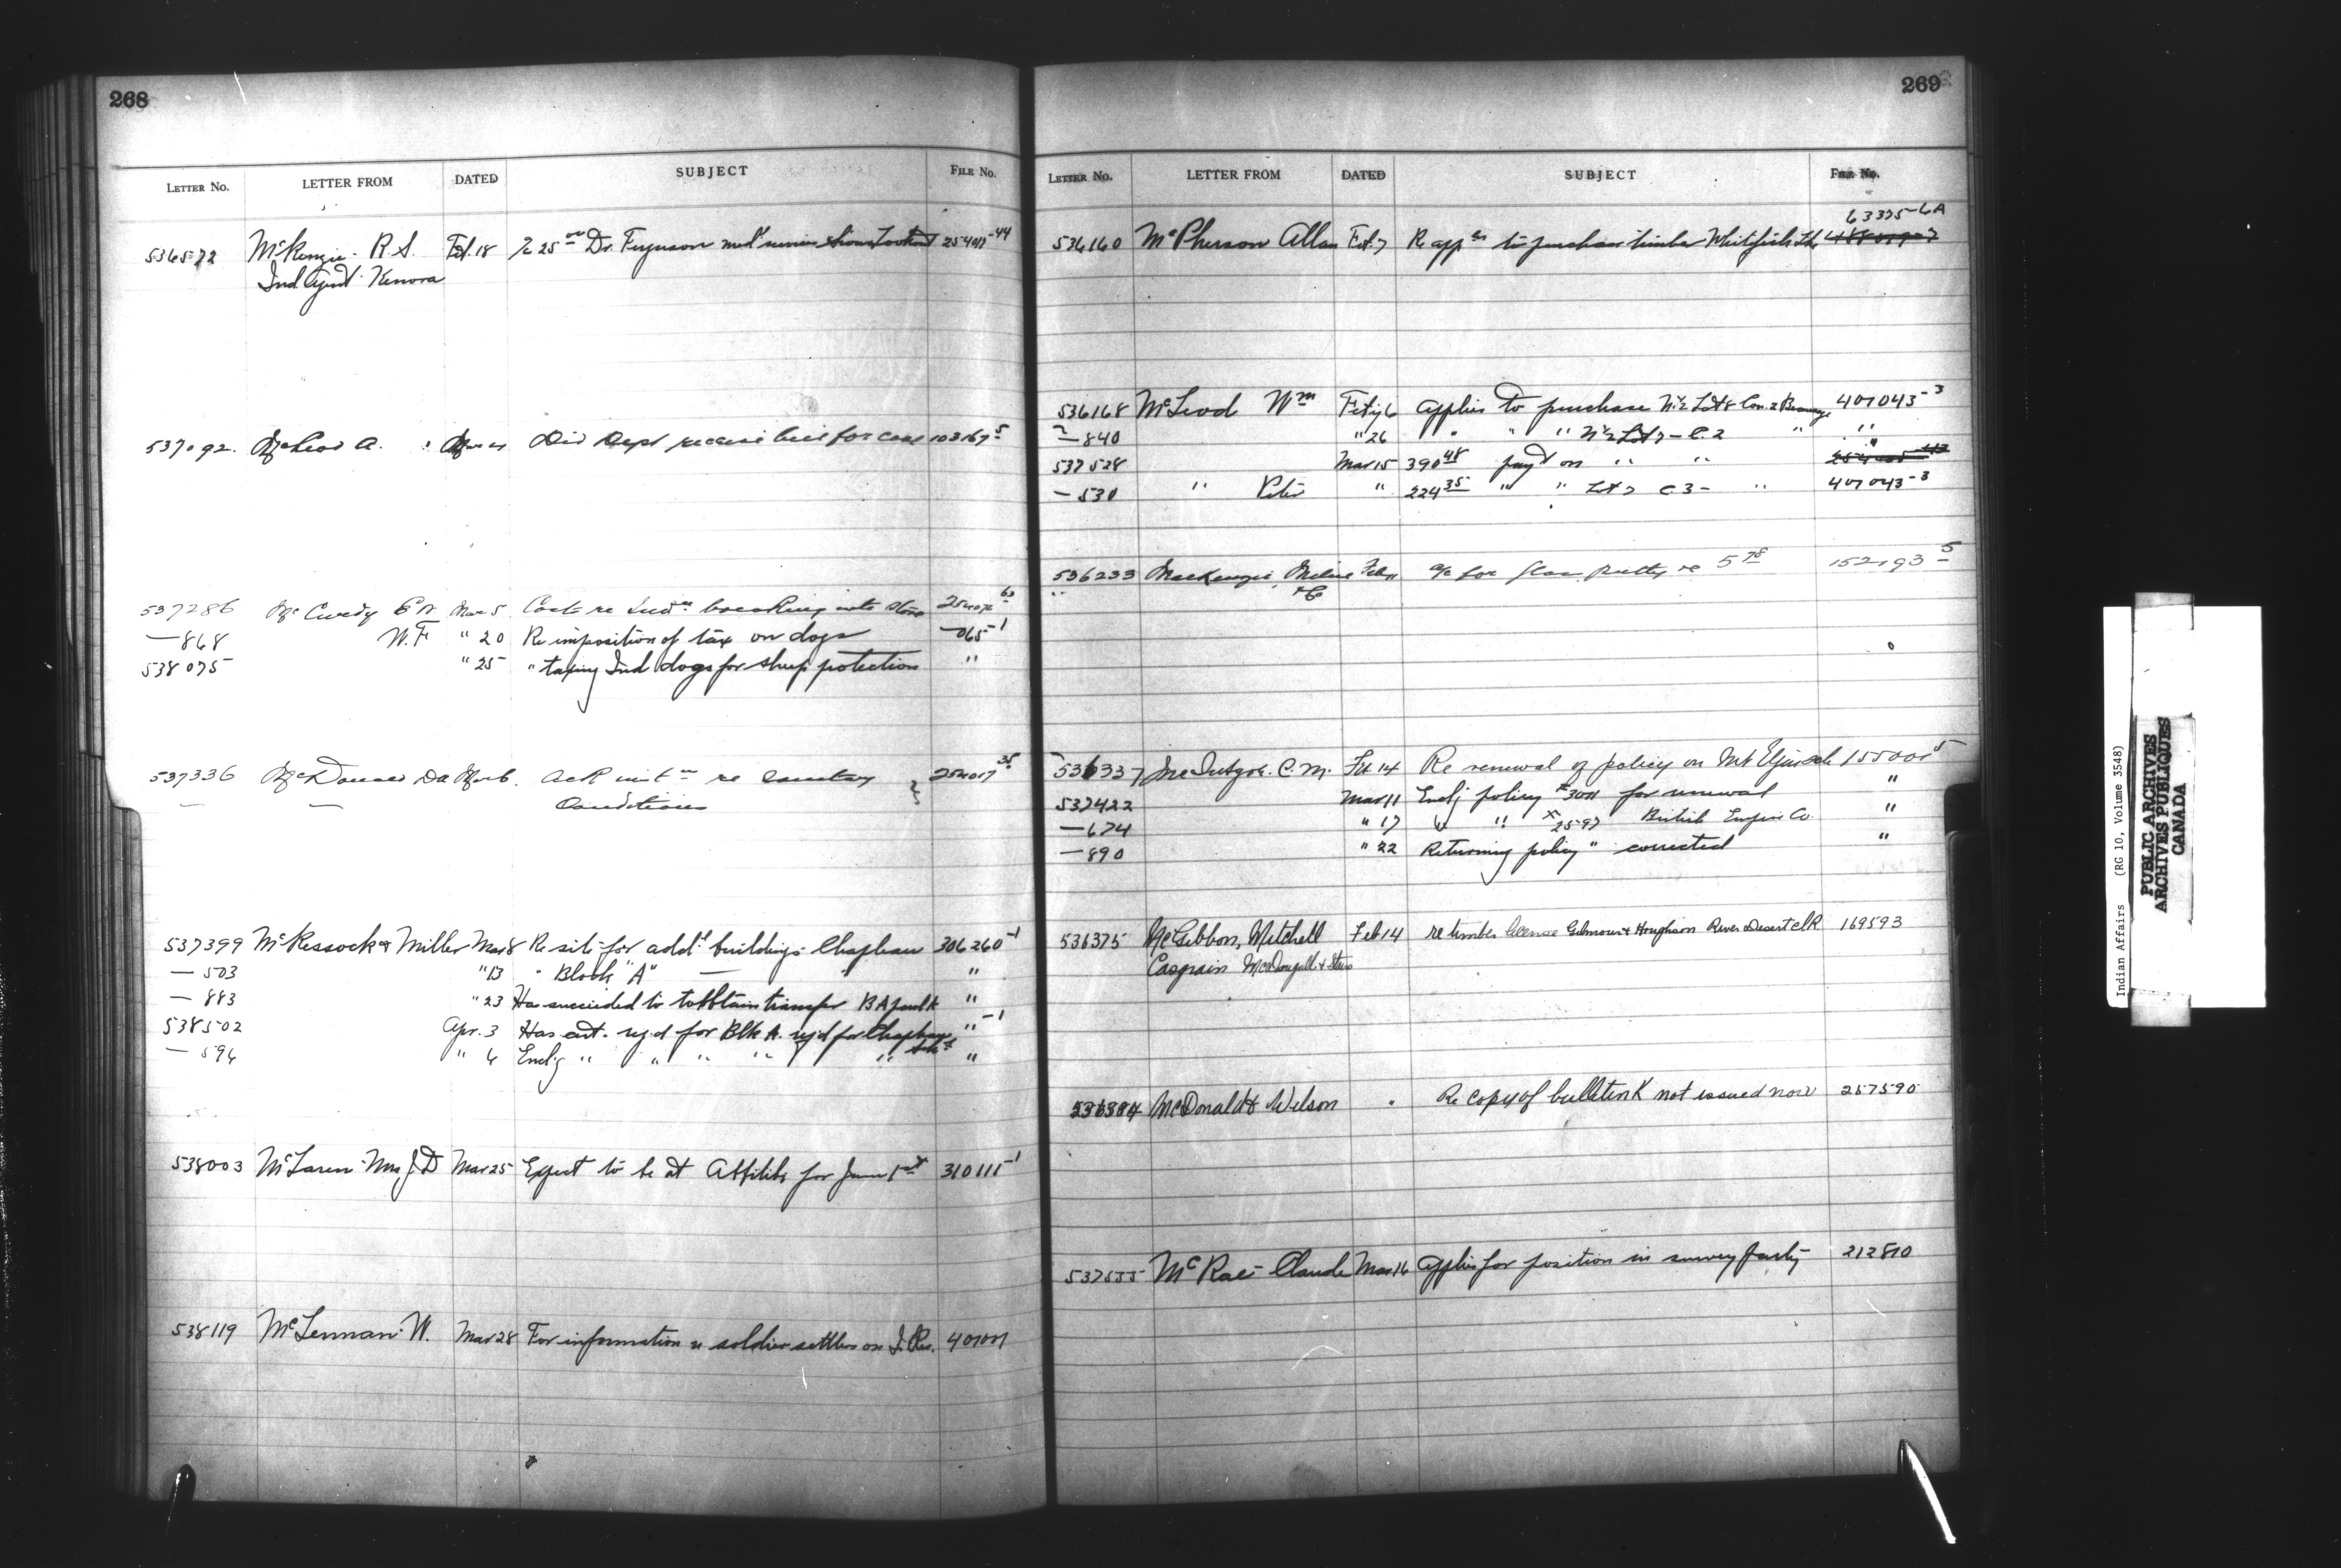 268
LETTER NO. LETTER FROM DATED SUBJECT FILE No.
536572 McKenzie R S. Feb. 18 Re 25 00 Dr. Ferguson med' services Sioux Lookout 254017-44
Ind Agent Kenora
537092 McLeod A. Mar 4 Did Dept receive bill for case 103167 5
537286 McCurdy E A Mar 5 Costs re Ind breaking into store
—868 W.F " 20 Re imposition of tax on dogs —065-1
538075 " 25 " taxing Ind dogs for sheep protection "
537336 McDonald Da Mar 6. Ack re sanitary 254017 35
Conditions
537399 McKessock & Miller Mar 8 Re site for add'l buildings Chapleau 306260-1
— 503 "13 " Block "A" — "
— 883 "23 Has succeeded to obtain transfer "
538502 Apr. 3 Has for Blk A. for Chapleau "-1
— 594 " 6 Encl'g " " " " " Sch "
538003 McLaren Mrs J D Mar 25 Expect to be at Abitibi for June 1st 310111-1
538119 McLennan W. Mar 28 For information re soldier settlers on I. Res. 401007
269
LETTER No. LETTER FROM DATED SUBJECT FILE No.
63375-6A
536160 McPherson Allan Feb. 7 Re app to purchase timber Whitefish Lke
536168 McLeod Wm Feby 6 Applies to purchase N½ Lot 8 Con. 2 407043-3
—840 " 26 " " " N½ Lot 7 - C. 2 " "
537528 Mar 15 390 48 pay't on " " "
— 530 " Peter " 224 35 " " Lot 7 C 3 - " 407043-3
536233 MacKenzie, Milne Feb 11 a/c for glass, putty re 5 78 152193 5
& Co
536337 McIntyre. C. M. Feb 14 Re renewal of policy on Mt Elgin sch 155001 5
537422 Mar 11 Encl'g policy #3011 for renewal "
—674 " 17 " " 2597 British Empire Co. "
—890 " 22 Returning policy " corrected "
536375 McGibbon, Mitchell Feb 14 re timber license Gilmour & Houghson River Desert 169593
Casgrain McDougall & Stairs
536384 McDonald & Wilson " Re copy of bulletin not issued now 257590
537555 McRae Claude Mar 16 Applies for position in survey party 212810
Indian Affairs (RG 10, Volume 3548)
PUBLIC ARCHIVES
ARCHIVES PUBLIQUES
CANADA